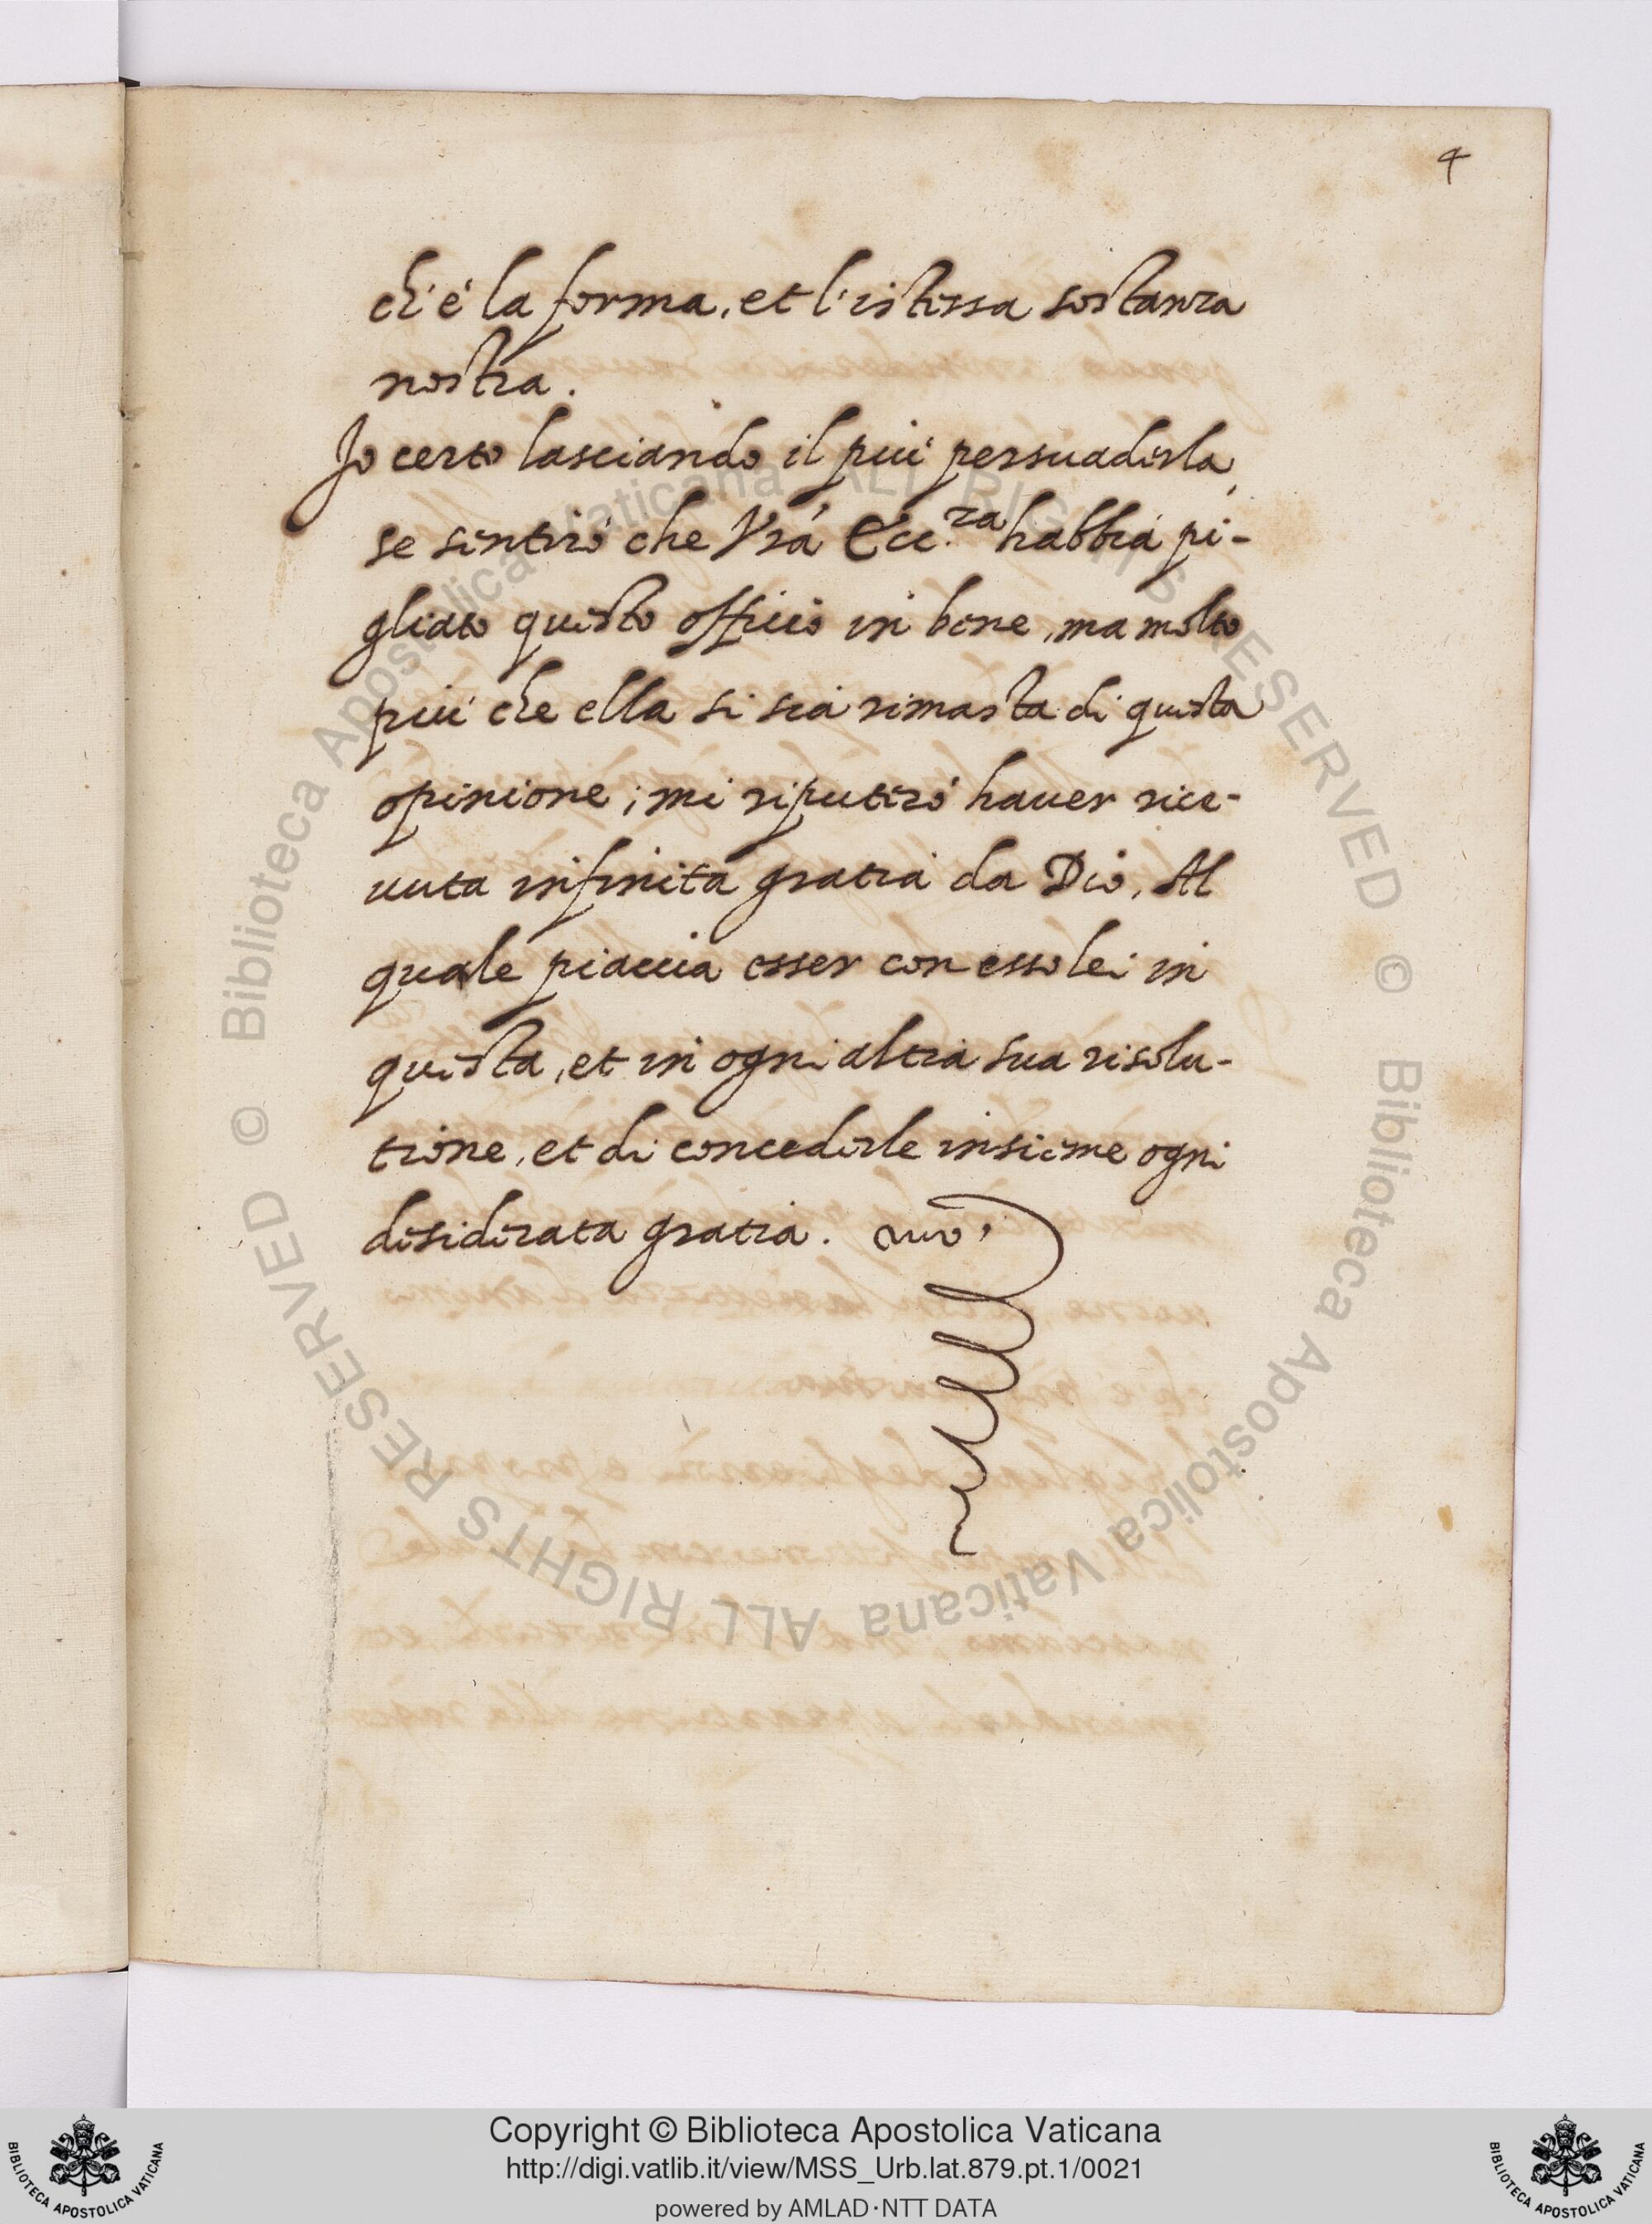 4
ch'è la forma, et l'istessa sostanza
nostra.
Io certo lasciando il più persuaderla,
se sentirò che Vrã Ecc.za habbia pi-
gliato questo officio in bene, ma molto
più che ella si sia rimasta di questa
opinione; mi riputerò hauer rice-
uuta infinita gratia da Dio, Al
quale piaccia esser con esso lei in
questa, et in ogni altra sua risolu-
tione, et di concederle insieme ogni
desiderata gratia.
© Biblioteca Apostolica Vaticana ALL RIGHTS RESERVED © Biblioteca Apostolica Vaticana ALL RIGHTS RESERVED
Copyright © Biblioteca Apostolica Vaticana
http://digi.vatlib.it/view/MSS_Urb.lat.879.pt.1/0021
powered by AMLAD·NTT DATA
BIBLIOTECA APOSTOLICA VATICANA
BIBLIOTECA APOSTOLICA VATICANA